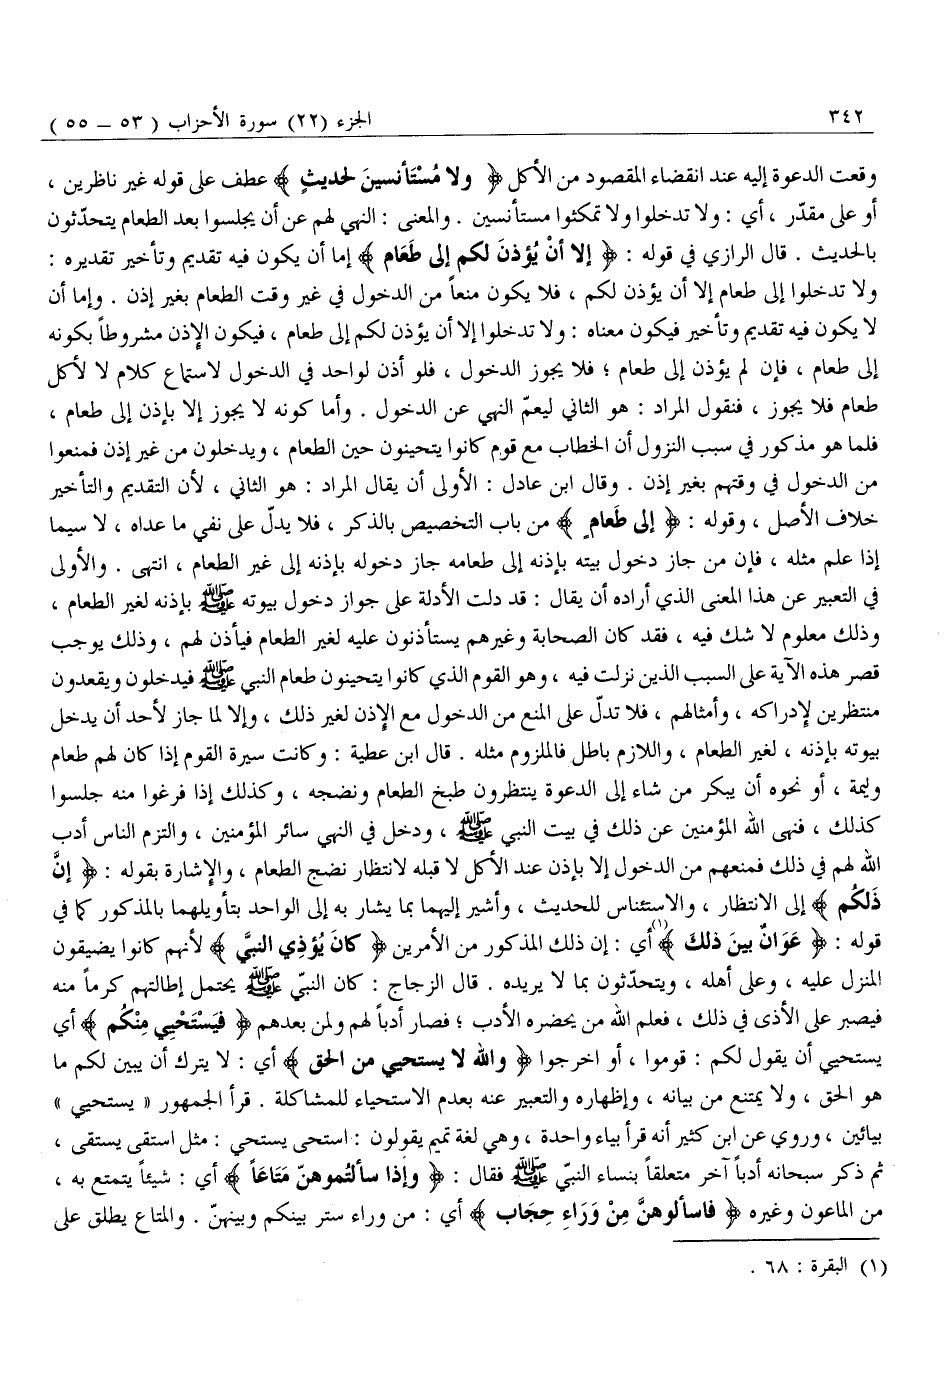 ٣٤٢
الجزء (٢٢) سورة الأحزاب ( ٥٣ – ٥٥ )
وقعت الدعوة إليه عند انقضاء المقصود من الأكل ﴿ ولا مُسْتَأنسينَ لحديثٍ ﴾ عطف على قوله غير ناظرين ،
أو على مقدّر ، أي : ولا تدخلوا ولا تمكثوا مستأنسين . والمعنى : النهي لهم عن أن يجلسوا بعد الطعام يتحدّثون
بالحديث . قال الرازي في قوله : ﴿ إلا أنْ يُؤذنَ لكم إلى طَعَام ﴾ إما أن يكون فيه تقديم وتأخير تقديره :
ولا تدخلوا إلى طعام إلا أن يؤذن لكم ، فلا يكون منعاً من الدخول في غير وقت الطعام بغير إذن . وإما أن
لا يكون فيه تقديم وتأخير فيكون معناه : ولا تدخلوا إلا أن يؤذن لكم إلى طعام ، فيكون الإذن مشروطاً بكونه
إلى طعام ، فإن لم يؤذن إلى طعام ؛ فلا يجوز الدخول ، فلو أذن لواحد في الدخول لاستماع كلام لا لأكل
طعام فلا يجوز ، فنقول المراد : هو الثاني ليعمّ النهي عن الدخول . وأما كونه لا يجوز إلا بإذن إلى طعام ،
فلما هو مذكور في سبب النزول أن الخطاب مع قوم كانوا يتحينون حين الطعام ، ويدخلون من غير إذن فمنعوا
من الدخول في وقتهم بغير إذن . وقال ابن عادل : الأولى أن يقال المراد : هو الثاني ، لأن التقديم والتأخير
خلاف الأصل ، وقوله : ﴿ إلى طَعَامٍ ﴾ من باب التخصيص بالذكر ، فلا يدلّ على نفي ما عداه ، لا سيما
إذا علم مثله ، فإن من جاز دخول بيته بإذنه إلى طعامه جاز دخوله بإذنه إلى غير الطعام ، انتهى . والأولى
في التعبير عن هذا المعنى الذي أراده أن يقال : قد دلت الأدلة على جواز دخول بيوته ﷺ بإذنه لغير الطعام ،
وذلك معلوم لا شك فيه ، فقد كان الصحابة وغيرهم يستأذنون عليه لغير الطعام فيأذن لهم ، وذلك يوجب
قصر هذه الآية على السبب الذين نزلت فيه ، وهو القوم الذي كانوا يتحينون طعام النبي ﷺ فيدخلون ويقعدون
منتظرين لإدراكه ، وأمثالهم ، فلا تدلّ على المنع من الدخول مع الإذن لغير ذلك ، وإلا لما جاز لأحد أن يدخل
بيوته بإذنه ، لغير الطعام ، واللازم باطل فالملزوم مثله . قال ابن عطية : وكانت سيرة القوم إذا كان لهم طعام
وليمة ، أو نحوه أن يبكر من شاء إلى الدعوة ينتظرون طبخ الطعام ونضجه ، وكذلك إذا فرغوا منه جلسوا
كذلك ، فنهى الله المؤمنين عن ذلك في بيت النبي ﷺ ، ودخل في النهي سائر المؤمنين ، والتزم الناس أدب
الله لهم في ذلك فمنعهم من الدخول إلا بإذن عند الأكل لا قبله لانتظار نضج الطعام ، والإشارة بقوله : ﴿ إنَّ
ذَلكُم ﴾ إلى الانتظار ، والاستئناس للحديث ، وأشير إليهما بما يشار به إلى الواحد بتأويلهما بالمذكور كما في
قوله : ﴿ عَوَانٌ بينَ ذلكَ ﴾(١) أي : إن ذلك المذكور من الأمرين ﴿ كانَ يُؤذي النبيَّ ﴾ لأنهم كانوا يضيقون
المنزل عليه ، وعلى أهله ، ويتحدّثون بما لا يريده . قال الزجاج : كان النبيّ ﷺ يحتمل إطالتهم كرماً منه
فيصبر على الأذى في ذلك ، فعلم الله من يحضره الأدب ؛ فصار أدباً لهم ولمن بعدهم ﴿ فيَسْتَحْيِي مِنْكُم ﴾ أي
يستحيي أن يقول لكم : قوموا ، أو اخرجوا ﴿ والله لا يستحيي من الحق ﴾ أي : لا يترك أن يبين لكم ما
هو الحق ، ولا يمتنع من بيانه ، وإظهاره والتعبير عنه بعدم الاستحياء للمشاكلة . قرأ الجمهور « يستحيي »
بيائين ، وروي عن ابن كثير أنه قرأ بياء واحدة ، وهي لغة تميم يقولون : استحى يستحي : مثل استقى يستقى ،
ثم ذكر سبحانه أدباً آخر متعلقاً بنساء النبيّ ﷺ فقال : ﴿ وإذا سألتموهنّ مَتَاعَاً ﴾ أي : شيئاً يتمتع به ،
من الماعون وغيره ﴿ فاسألوهنَّ مِنْ وَرَاءِ حِجَاب ﴾ أي : من وراء ستر بينكم وبينهنّ . والمتاع يطلق على
(١) البقرة : ٦٨ .